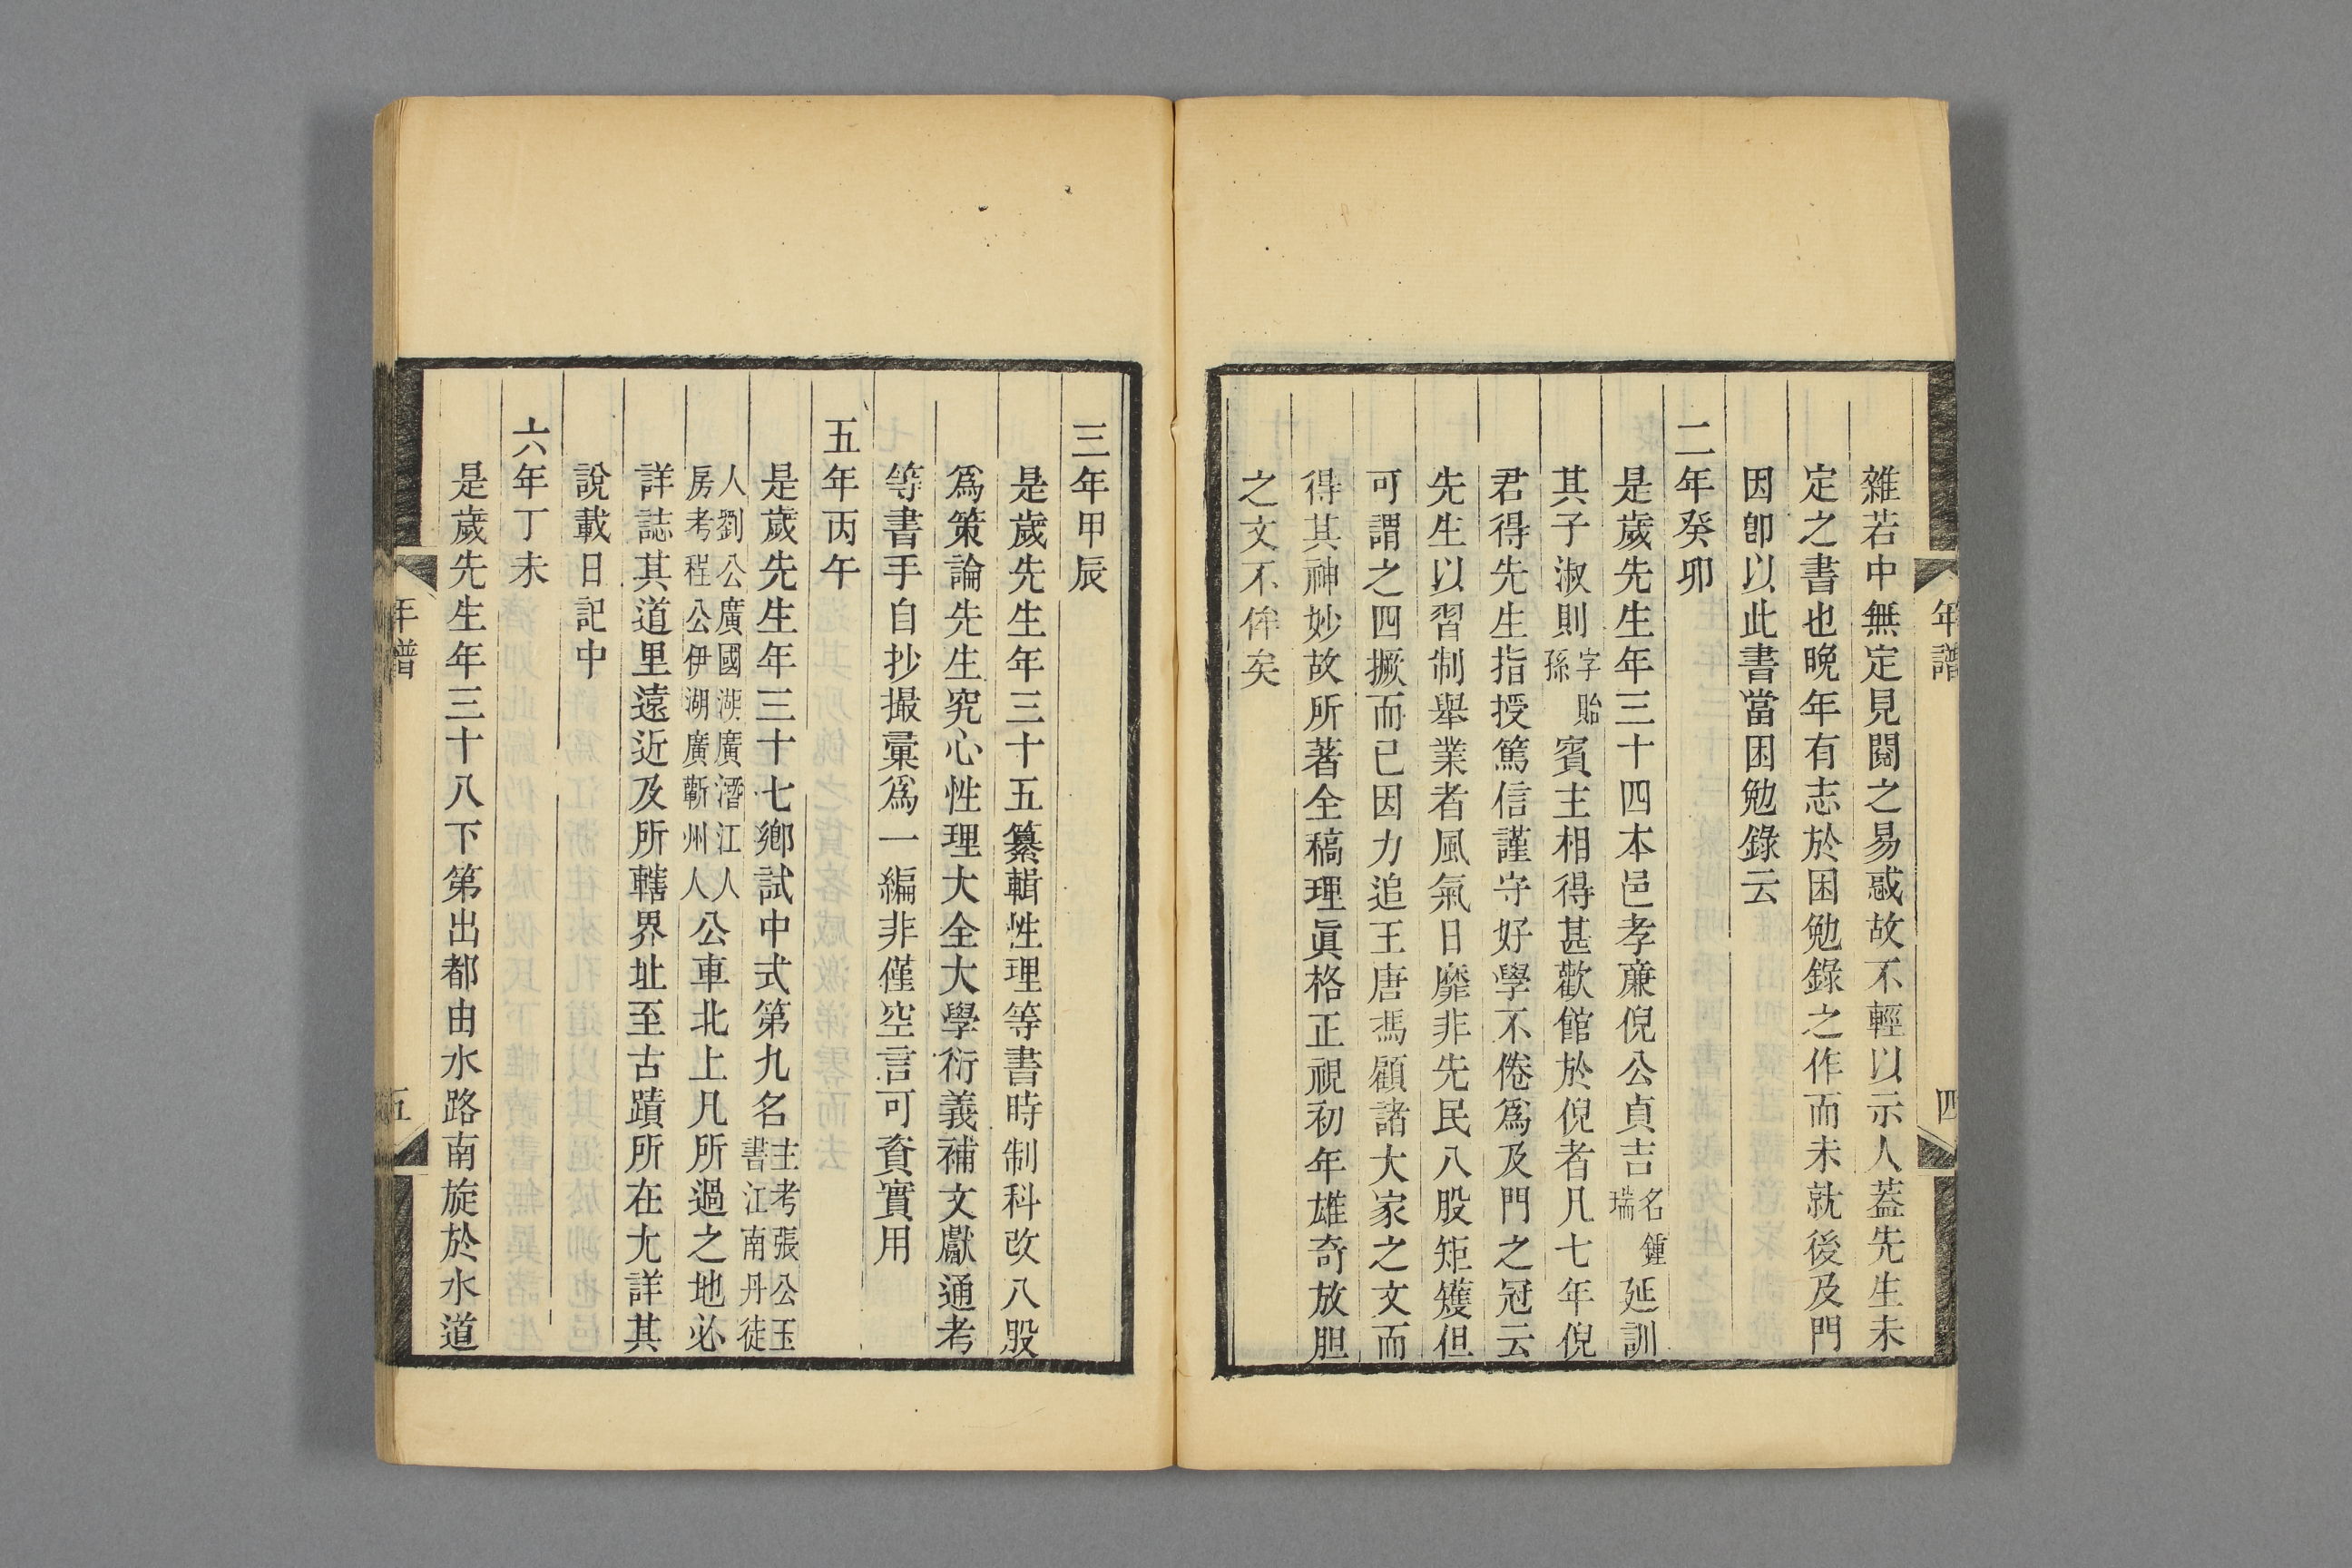 年譜
四
雜若中無定見閱之易惑故不輕以示人蓋先生未
定之書也晚年有志於困勉錄之作而未就後及門
因卽以此書當困勉錄云
二年癸卯
是歲先生年三十四本邑孝亷倪公貞吉名鍾瑞延訓
其子淑則字貽孫賓主相得甚歡館於倪者凡七年倪
君得先生指授篤信謹守好學不倦爲及門之冠云
先生以習制舉業者風氣日靡非先民八股矩矱但
可謂之四撅而已因力追王唐馮顧諸大家之文而
得其神妙故所著全稿理眞格正視初年雄奇放胆
之文不侔矣
三年甲辰
是歲先生年三十五纂輯性理等書時制科改八股
爲策論先生究心性理大全大學衍義補文獻通考
等書手自抄撮彙爲一編非僅空言可資實用
五年丙午
是歲先生年三十七鄉試中式第九名主考張公玉書江南丹徒
人劉公廣國湖廣潛江人房考程公伊湖廣蘄州人公車北上凡所過之地必
詳誌其道里遠近及所轄界址至古蹟所在尤詳其
說載日記中
六年丁未
是歲先生年三十八下第出都由水路南旋於水道
年譜
五